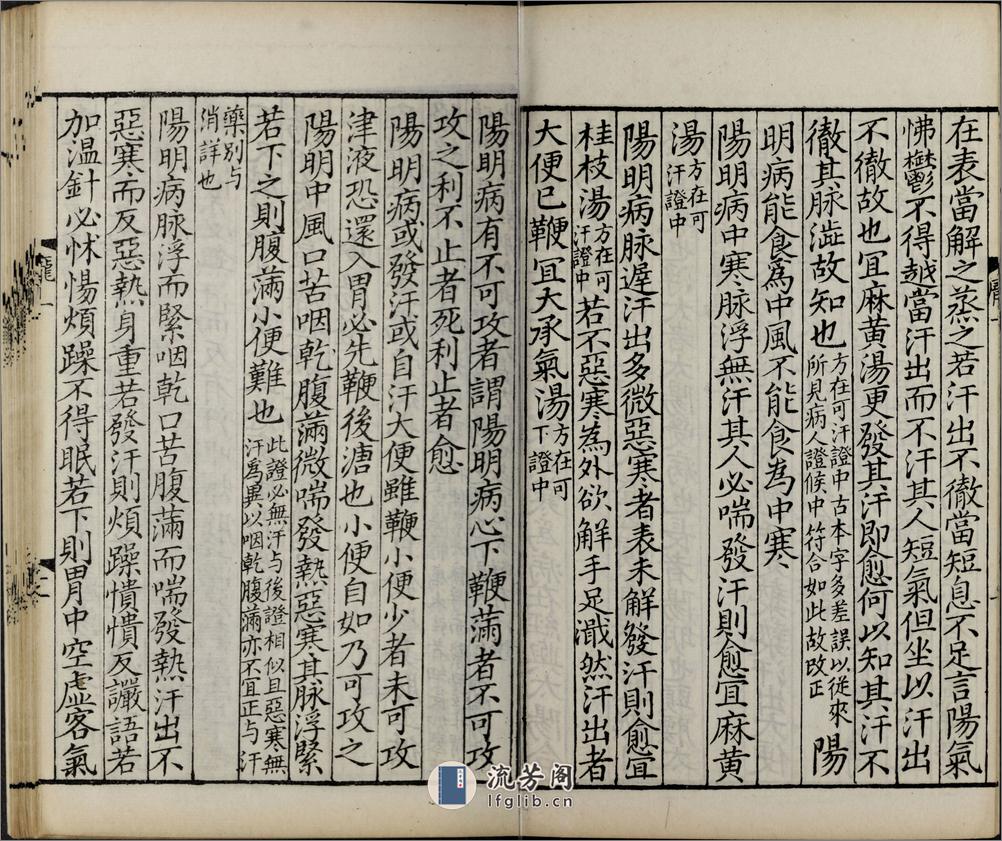 在表當解之蒸之若汗出不徹當短息不足言陽氣
怫鬱不得越當汗出而不汗其人短氣但坐以汗出
不徹故也宜麻黃湯更發其汗即愈何以知其汗不
徹其脉澁故知也方在可汗證中古本字多差誤以從來所見病人證候中符合如此故改正陽
明病能食爲中風不能食為中寒
陽明病中寒脉浮無汗其人必喘發汗則愈宜麻黃
湯方在可汗證中
陽明病脉遲汗出多微惡寒者表未解發汗則愈宜
桂枝湯方在可汗證中若不惡寒為外欲解手足濈然汗出者
大便已鞕宜大承氣湯方在可下證中
陽明病有不可攻者謂陽明病心下鞕滿者不可攻
攻之利不止者死利止者愈
陽明病或發汗或自汗大便雖鞕小便少者未可攻
津液恐還入胃必先鞕後溏也小便自如乃可攻之
陽明中風口苦咽乾腹滿微喘發熱惡寒其脉浮緊
若下之則腹滿小便難也此證必無汗与後證相似且惡寒無汗爲異以咽乾腹滿亦不宜正与汗
藥別与消詳也
陽明病脉浮而緊咽乾口苦腹滿而喘發熱汗出不
惡寒而反惡熱身重若發汗則煩躁憒憒反讝語若
加溫針必怵惕煩躁不得眠若下則胃中空虛客氣
流芳阁
lfglib.cn